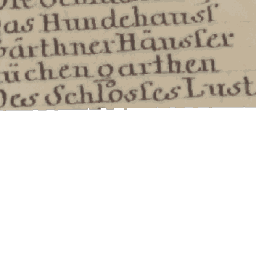 as Hundehausſ
ärthner Häuſer
üchen garthen
Des Schloſſes Luſt